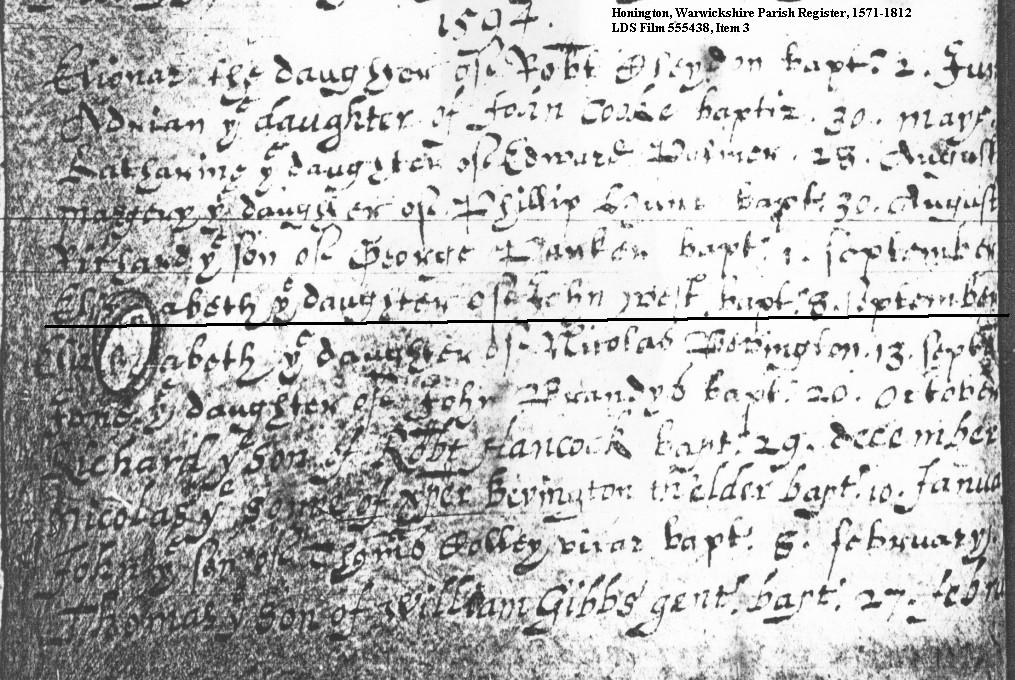 Honington, Warwickshire Parish Register, 1571-1812
LDS Film 555438, Item 3
1594.
Elionar the daughter of Robt bapt. 2. Jun
Adrian yͤ daughter of John Cooke baptiz. 30. maye.
Catharine yͤ daughter of Edward Palmer. 25. August
margery yͤ daughter of Phillip Hunt bapt. 30. August
Richard yͤ son of George bapt. 1. september
Elizabeth yͤ daughter of John west bapt. 8. september
Elizabeth yͤ daughter of Nicolas Bevington. 13. sept
Jane yͤ daughter of John bapt. 20. October
Richard yͤ son of Robt Hancock bapt. 29. december
Nicolas yͤ sonne of xper Bevington thelder bapt. 10. Janua
John yͤ son of Thoms vicar bapt. 8. february
Thomas yͤ son of William Gibbs gent. bapt. 27. febru